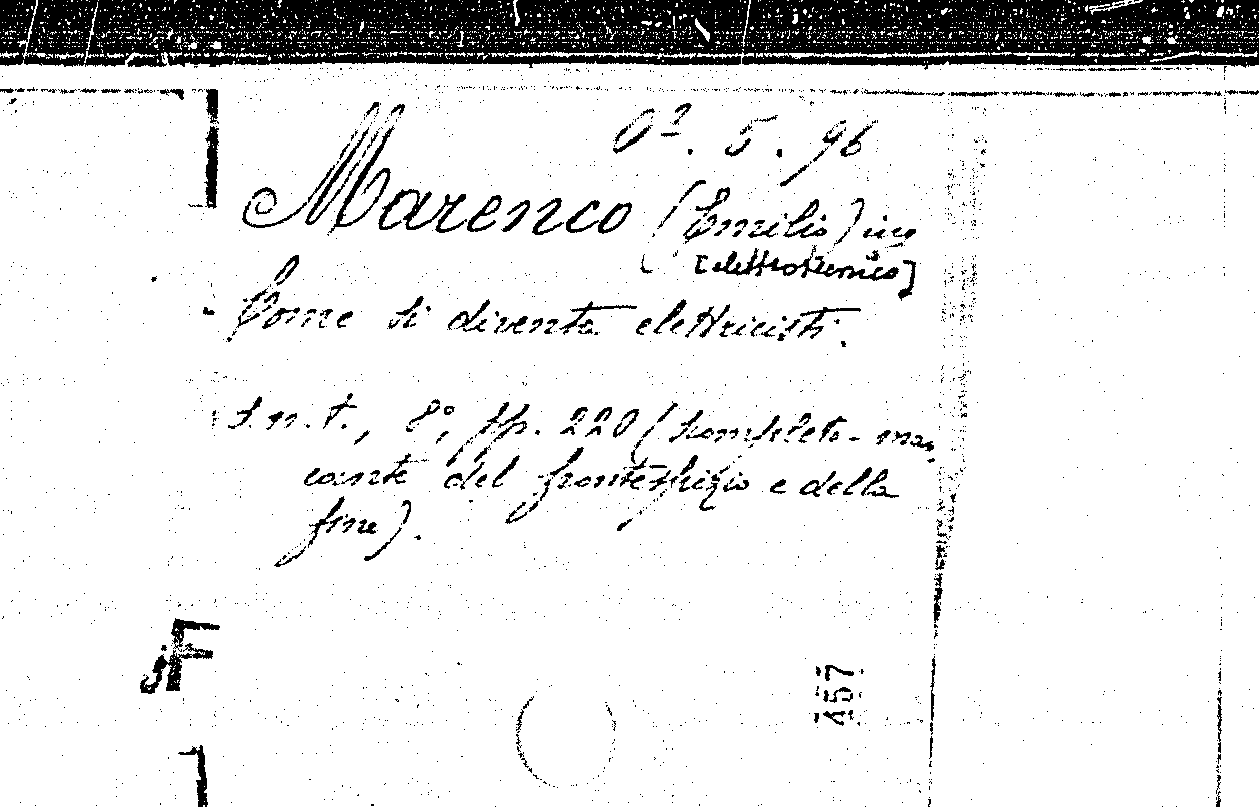 O². 5. 96
Marenco (Emilio) ing
[elettrotecnico]
Come si diventa elettricisti.
s.n.t., 8°, pp. 220 (incompleto - man
cante del frontespizio e della
fine).
F
457